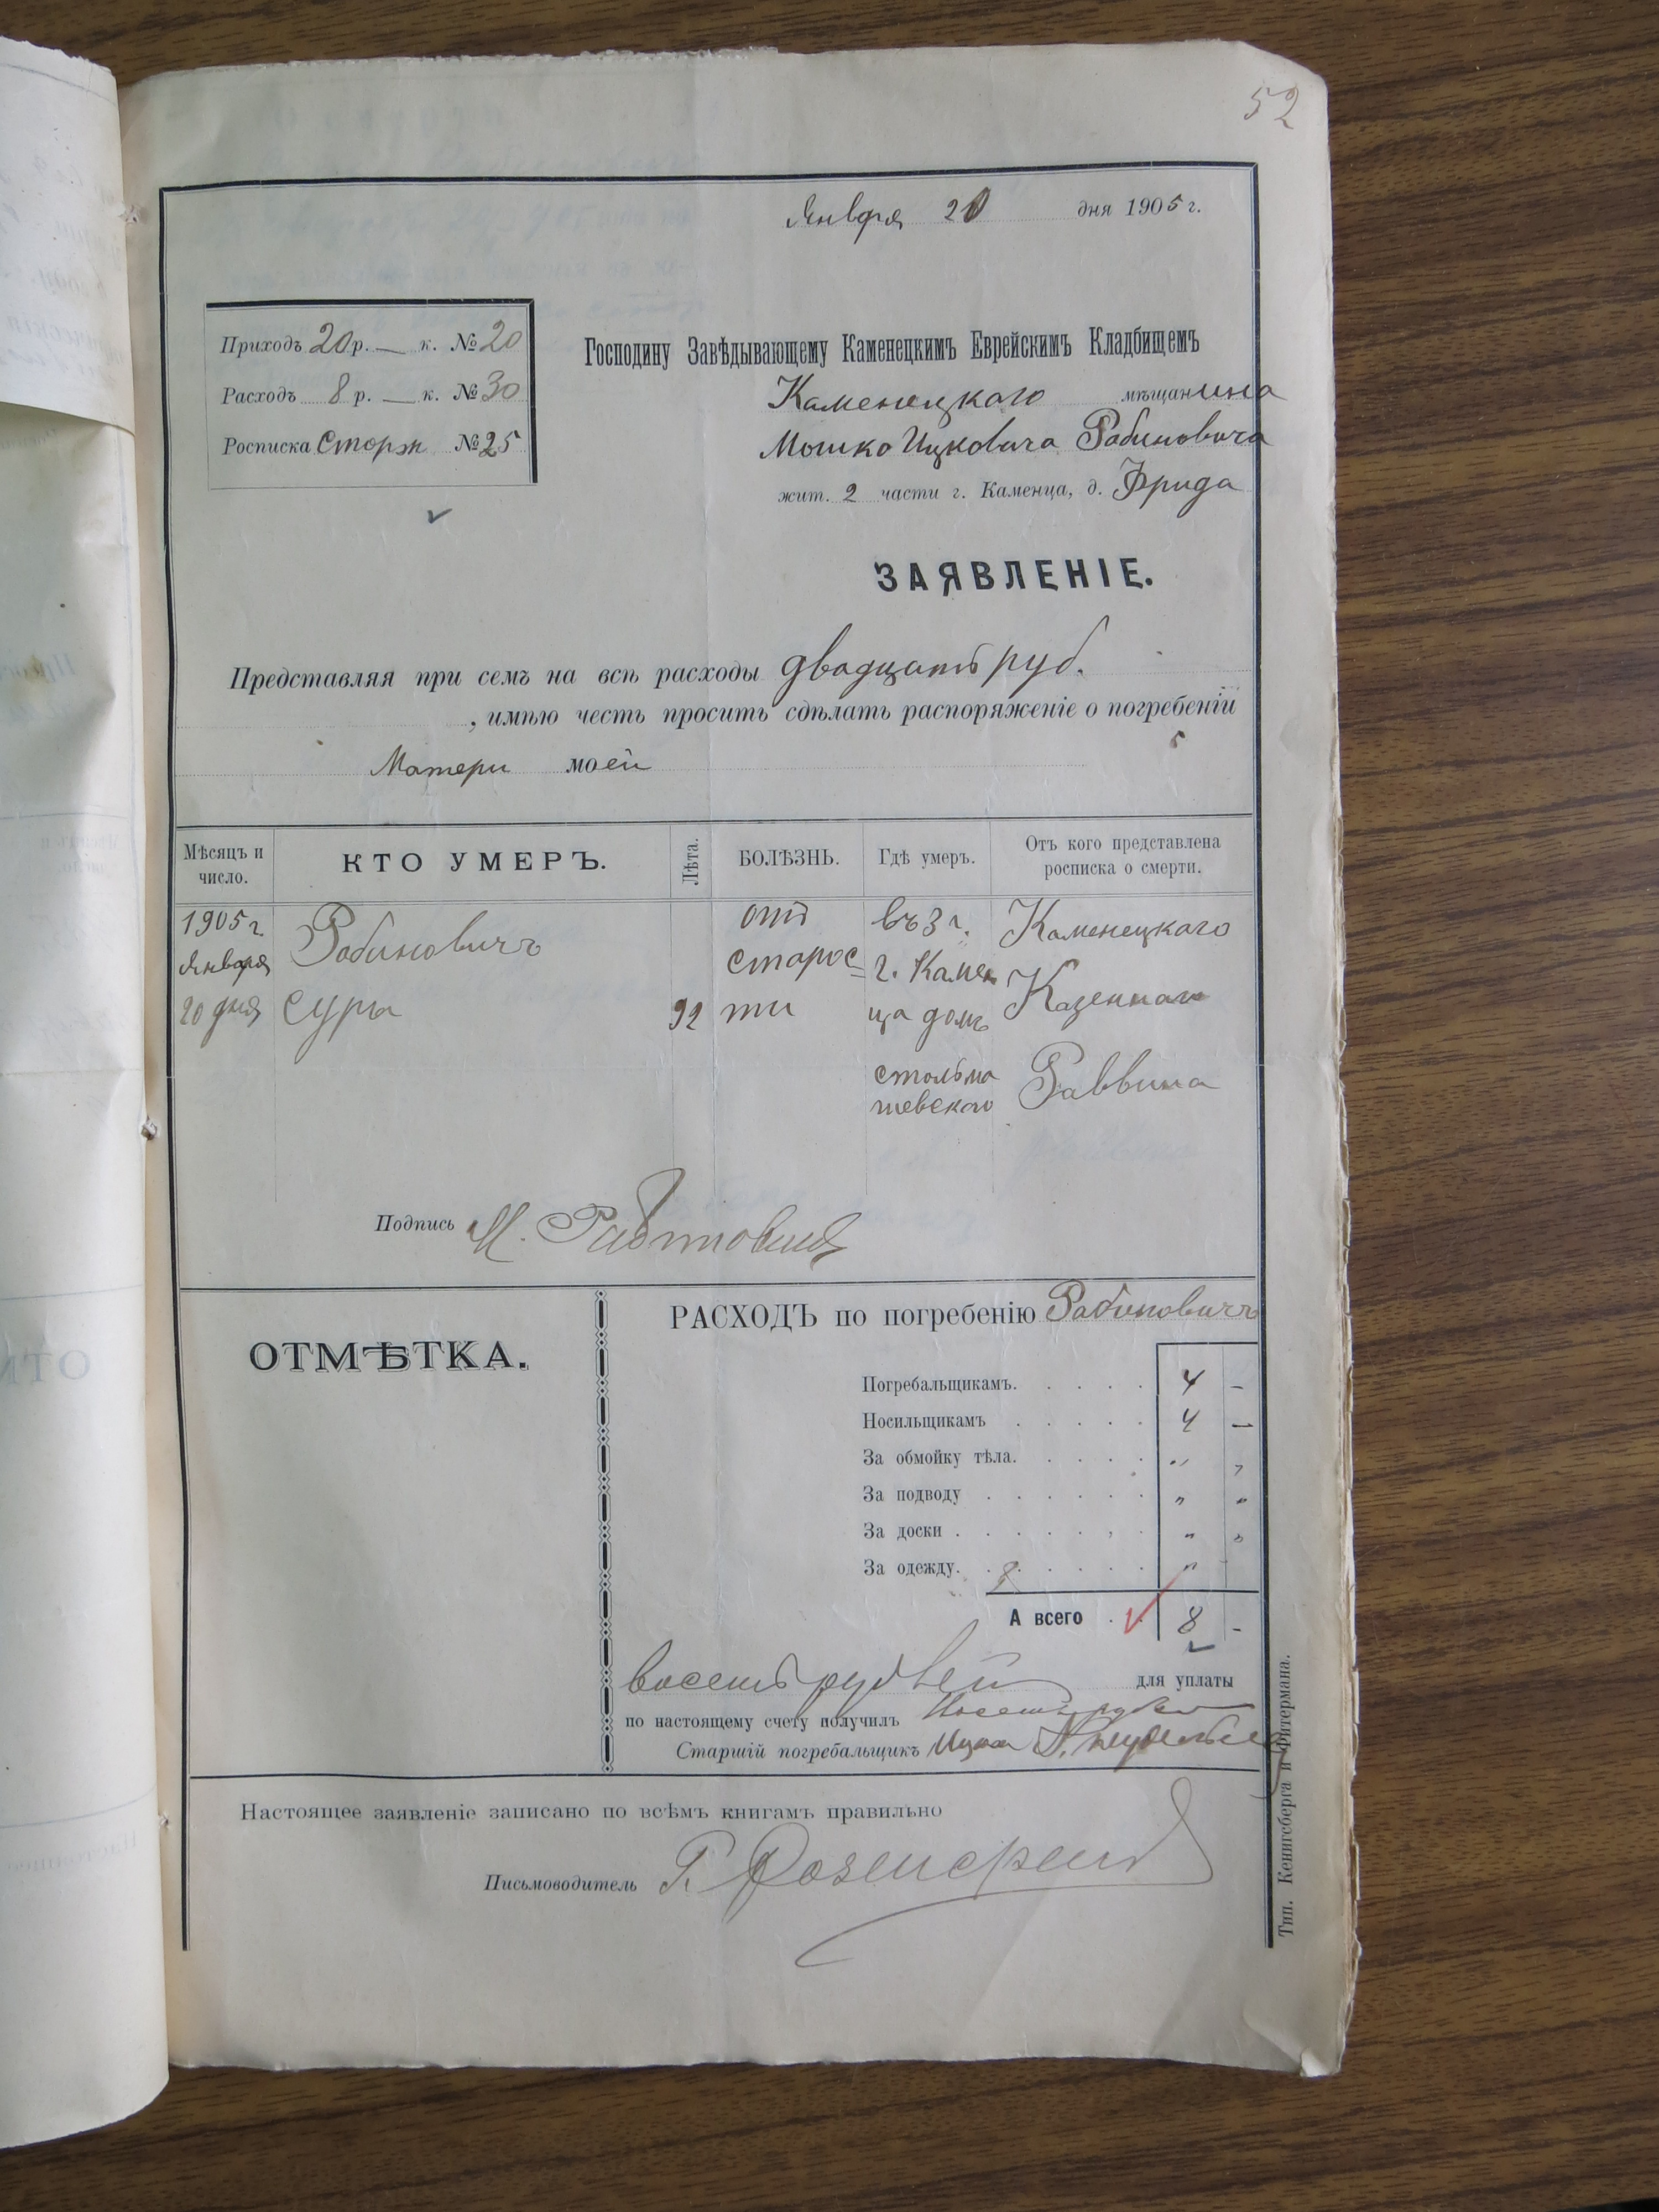 52
Января 20 дня 1905 г.
Приходъ 20 р. — к. № 20
Расходъ 8 р. — к. № 30
Росписка Сторж № 25
Господину Завѣдывающему Каменецкимъ Еврейскимъ Кладбищемъ
Каменецкаго мѣщанина
Мошко Ицковича Рабиновича
жит. 2 части г. Каменца, д. Фрида
ЗАЯВЛЕНІЕ.
Представляя при семъ на всѣ расходы двадцать руб.
, имѣю честь просить сдѣлать распоряженіе о погребеніи
Матери моей
Мѣсяцъ и число.
КТО УМЕРЪ.
Лѣта.
БОЛѢЗНЬ.
Гдѣ умеръ.
Отъ кого представлена росписка о смерти.
1905 г. Января 20 дня
Рабиновичъ Суры
92
отъ старос= ти
въ 3 г. г. Камен ца домъ
Каменецкаго Казеннаго Раввина
Подпись М. Рабиновичъ
ОТМѢТКА.
РАСХОДЪ по погребенію Рабиновичъ
Погребальщикамъ. 4 –
Носильщикамъ 4 –
За обмойку тѣла. " "
За подводу " "
За доски " "
За одежду. "
А всего 8 –
восемь рублей для уплаты
по настоящему счету получилъ
Старшій погребальщикъ Ицко
Настоящее заявленіе записано по всѣмъ книгамъ правильно
Письмоводитель Г.
Тип. Кенигсберга и Фитермана.